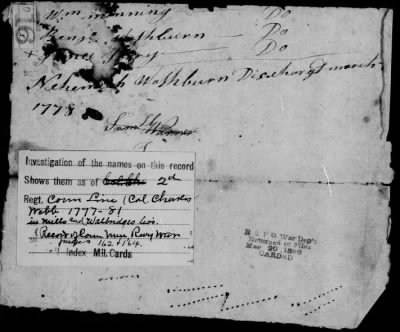 Wm manning Do
Benj. Washburn Do
Do
Nehemiah Washburn Discharg'd march
1778
Investigation of the names on this record
Shows them as of 2d
Regt. Conn Line (Col. Charles
Webb 1777-81
in Mills and Walbridges Cos.
(Record of Conn Men Revy War
pages 162 & 164
Index Mil. Cards
R & P O. War Dep't
Returned to Files
May 20 18
CARDED